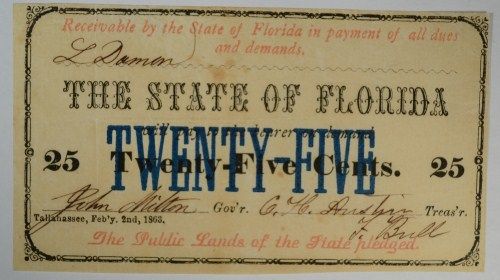 Receivable by the State of Florida in payment of all dues
and demands.
L Damon
THE STATE OF FLORIDA
will pay to the bearer on demand
TWENTY-FIVE
25 Twenty-Five Cents. 25
John Milton Gov'r. C. H. Austin Treas'r.
Tallahassee, Feb'y. 2nd, 1863.
The Public Lands of the State pledged.